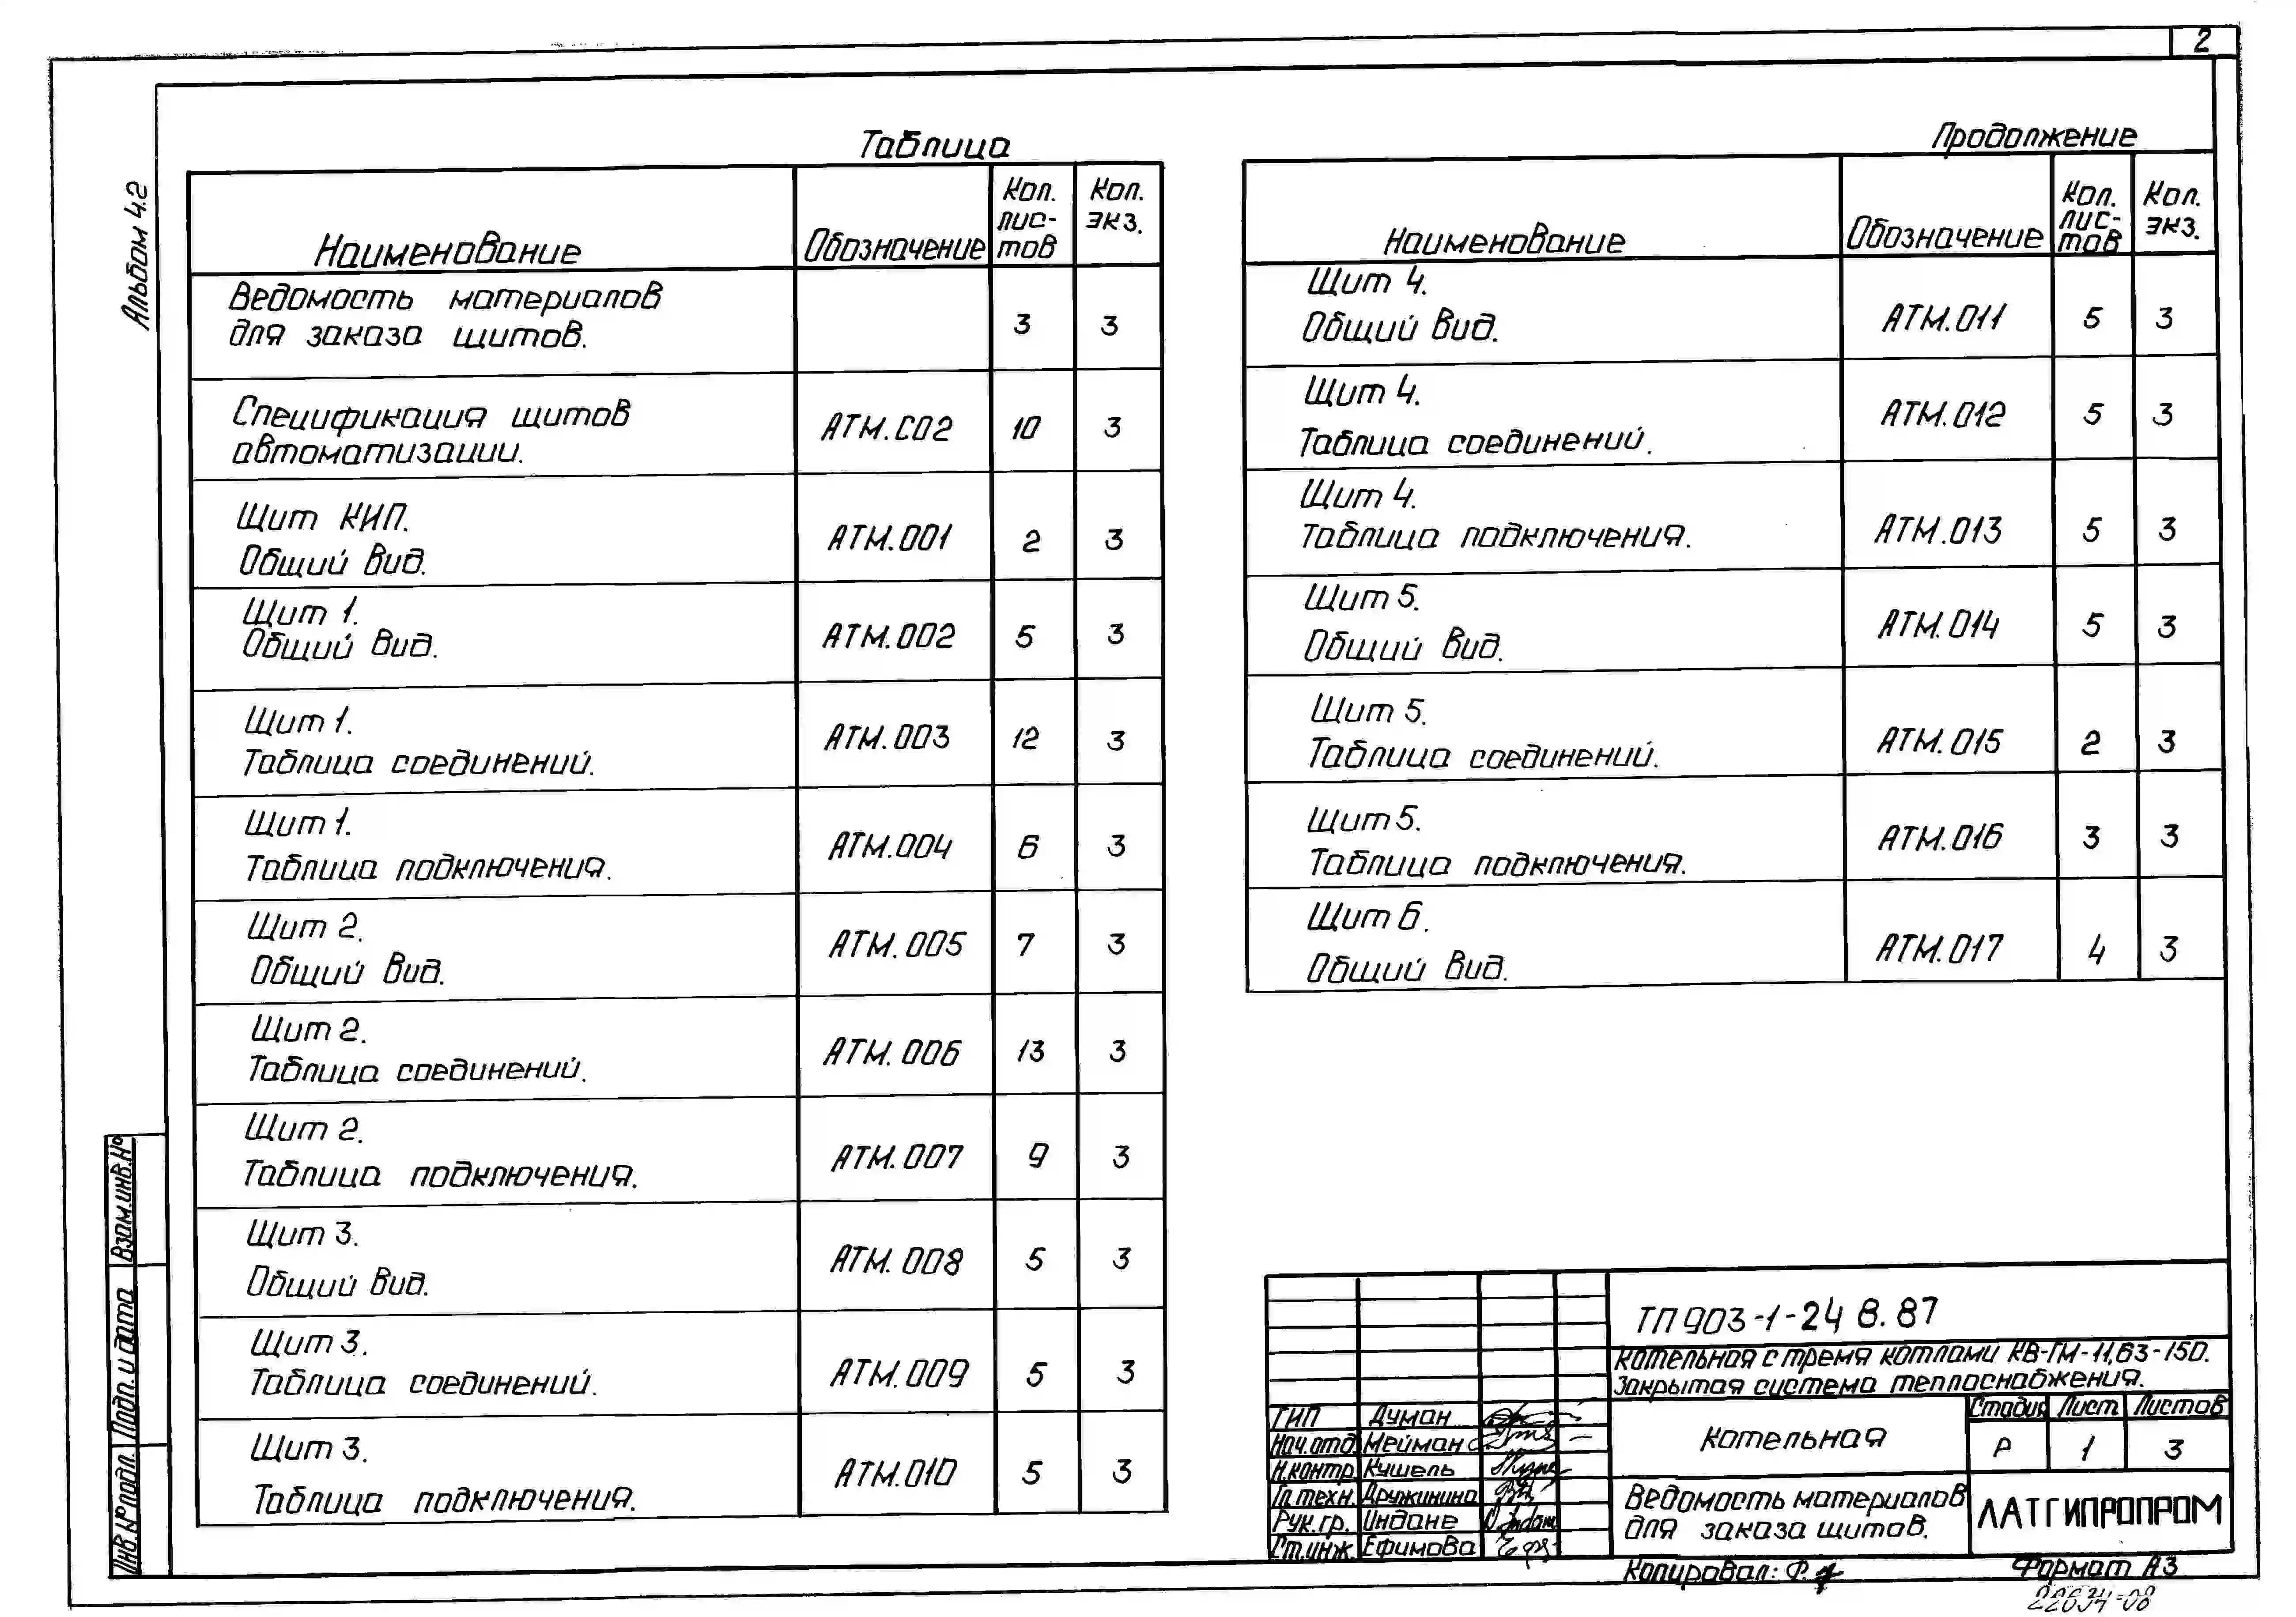 2
Альбом 4.2
Таблица
Наименование Обозначение Кол. лис-тов Кол. экз.
Ведомость материалов
для заказа щитов. 3 3
Спецификация щитов
автоматизации. АТМ.С02 10 3
Щит КИП.
Общий вид. АТМ.001 2 3
Щит 1.
Общий вид. АТМ.002 5 3
Щит 1.
Таблица соединений. АТМ.003 12 3
Щит 1.
Таблица подключения. АТМ.004 6 3
Щит 2.
Общий вид. АТМ.005 7 3
Щит 2.
Таблица соединений. АТМ.006 13 3
Щит 2.
Таблица подключения. АТМ.007 9 3
Щит 3.
Общий вид. АТМ.008 5 3
Щит 3.
Таблица соединений. АТМ.009 5 3
Щит 3.
Таблица подключения. АТМ.010 5 3
Продолжение
Наименование Обозначение Кол. лис-тов Кол. экз.
Щит 4.
Общий вид. АТМ.011 5 3
Щит 4.
Таблица соединений. АТМ.012 5 3
Щит 4.
Таблица подключения. АТМ.013 5 3
Щит 5.
Общий вид. АТМ.014 5 3
Щит 5.
Таблица соединений. АТМ.015 2 3
Щит 5.
Таблица подключения. АТМ.016 3 3
Щит 6.
Общий вид. АТМ.017 4 3
ТП 903-1-248.87
Котельная с тремя котлами КВ-ГМ-11,63-150.
Закрытая система теплоснабжения.
ГИП Думан
Нач.отд. Мейман
Н.контр. Кушель
Гл.техн. Дружинина
Рук.гр. Индане
Ст.инж. Ефимова
Котельная
Стадия Лист Листов
Р 1 3
Ведомость материалов
для заказа щитов.
ЛАТГИПРОПРОМ
Копировал: Ф.
Формат А3
22634-08
Взам.инв.№
Подп. и дата
Инв.№ подл.